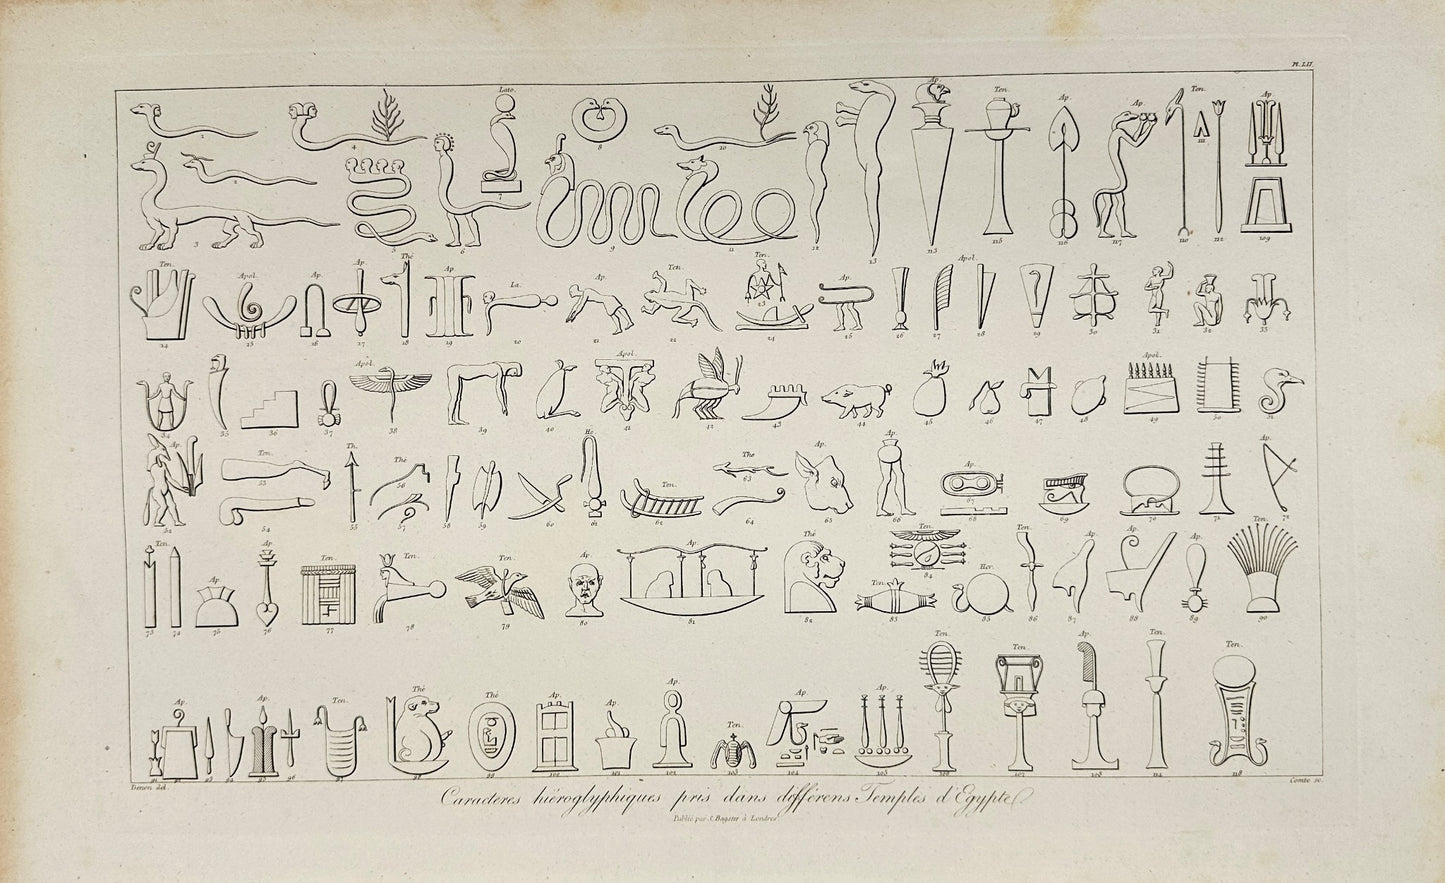 Pl. LII.
Lato.
Ap.
Ten.
Ap.
Ap.
Ten.
Ap.
1 2 3 4 5 6 7 8 9 10 11 12 13 113 115 116 117 110 111 112 109
Ten. Apol. Ap. Ap. Thé Ap. La. Ap. Ten. Ten. Ap. Apol.
14 15 16 17 18 19 20 21 22 23 24 25 26 27 28 29 30 31 32 33
Apol. Apol. Apol.
34 35 36 37 38 39 40 41 42 43 44 45 46 47 48 49 50 51
Ap. Ten. Th. Thé He. Ten. The Ap. Ap. Ap. Ap.
52 53 54 55 56 57 58 59 60 61 62 63 64 65 66 67 68 69 70 71 72
Ten. Ap. Ap. Ten. Ten. Ten. Ap. Ap. Thé Ten. Ten. Her. Ten. Ap. Ap. Ap. Ten.
73 74 75 76 77 78 79 80 81 82 83 84 85 86 87 88 89 90
Ap. Ap. Ten. Thé Thé Ap. Ap. Ap. Ten. Ap. Ap. Ten. Ten. Ap. Ten. Ten.
91 93 94 95 96 97 98 99 100 101 102 103 104 105 106 107 108 114 118
Denon del.
Comte sc.
Caracteres hiéroglyphiques pris dans différens Temples d'Egypte
Publié par S. Bagster à Londres.